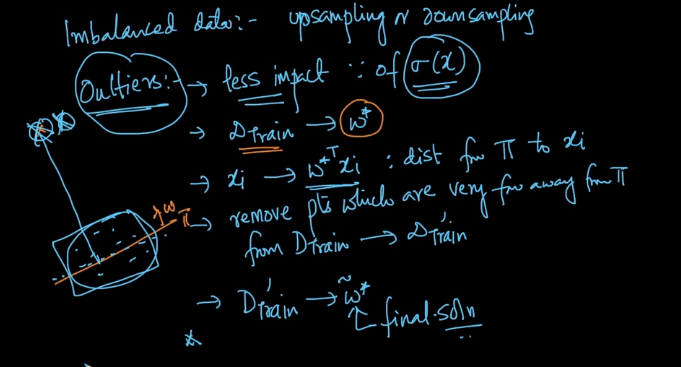 Imbalanced data:- upsampling or downsampling
Outliers:- → less impact ∵ of σ(x)
→ DTrain → w*
→ xi → w*ᵀxi : dist from π to xi
→ remove pts which are very far away from π
from DTrain → D'Train
→ D'Train → w̃*
↑ final soln
w
π